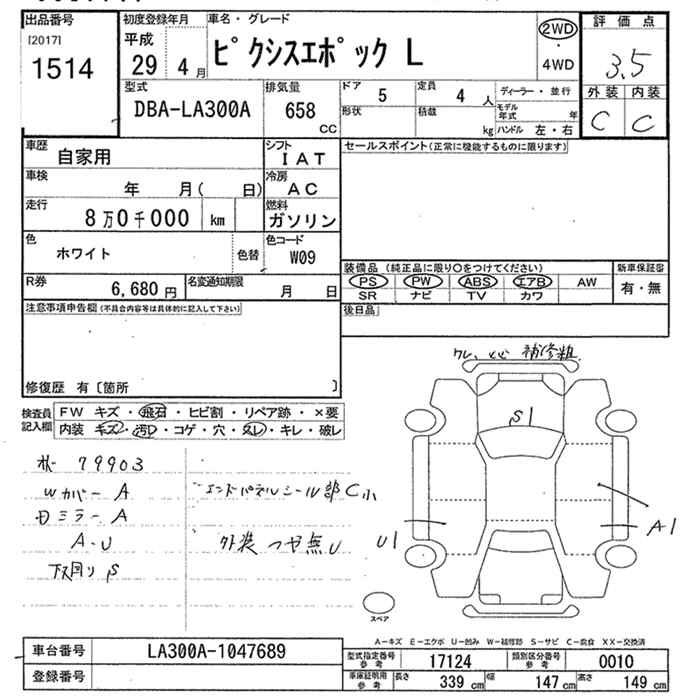 出品番号
[2017]
1514
初度登録年月
平成
29年 4月
車名・グレード
ピクシスエポック L
2WD
・
4WD
評価点
3.5
外装 内装
C C
型式
DBA-LA300A
排気量
658
cc
ドア 5
定員 4 人
ディーラー・並行
形状
積載 kg
モデル年式 年
ハンドル 左・右
車歴
自家用
シフト
IAT
セールスポイント(正常に機能するものに限ります)
車検
年 月( 日)
冷房
AC
走行
8万0千000 km
燃料
ガソリン
色
ホワイト
色替
色コード
W09
装備品 (純正品に限り○をつけてください)
新車保証書
PS PW ABS エアB AW
有・無
SR ナビ TV カワ
R券
6,680 円
名変通知期限
月 日
後日品
注意事項申告欄 (不具合内容等は具体的に記入して下さい)
修復歴 有〔箇所 〕
クレ、 補修粗
検査員
記入欄
FW キズ・飛石・ヒビ割・リペア跡・×要
内装 キズ・汚レ・コゲ・穴・スレ・キレ・破レ
S1
79903
Wカバー A
エンドパネルシール部C小
ミラー A
A・U
外装 ツヤ無し
下廻り S
U1
A1
スペア
A−キズ E−エクボ U−凹み W−補修跡 S−サビ C−腐食 XX−交換済
車台番号
LA300A-1047689
登録番号
型式指定番号
参考
17124
類別区分番号
参考
0010
車庫証明用
参考
長さ 339 cm
幅 147 cm
高さ 149 cm